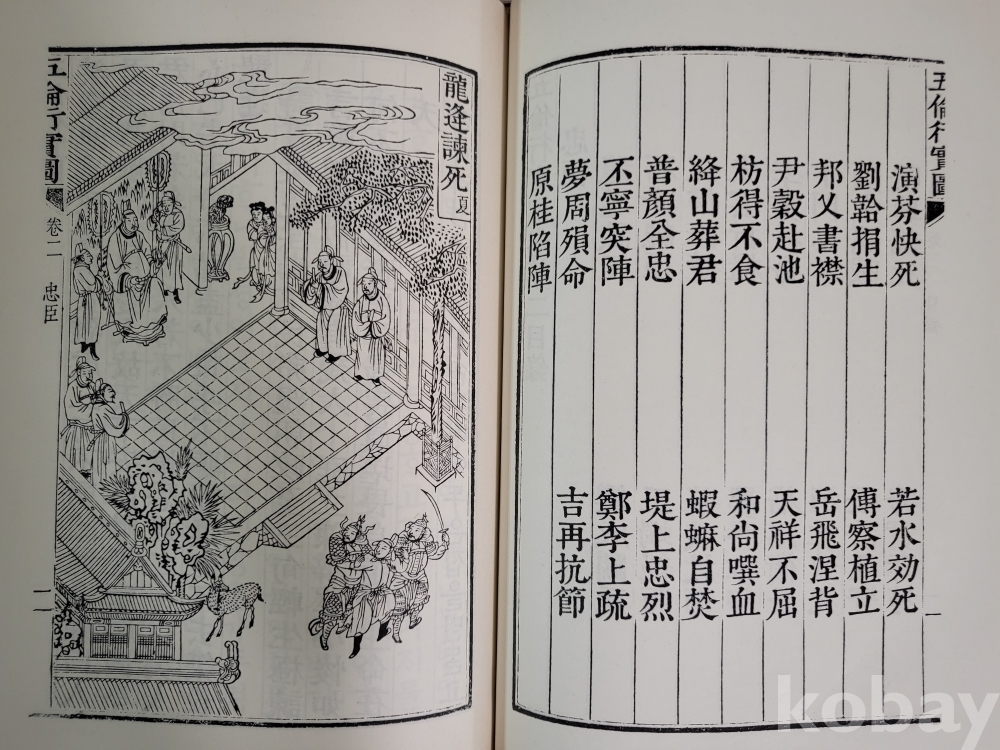 五倫行實圖
一
演芬快死 若水効死
劉韐捐生 傅察植立
邦乂書襟 岳飛涅背
尹穀赴池 天祥不屈
枋得不食 和尙噀血
絳山葬君 蝦䗫自焚
普顔全忠 堤上忠烈
丕寧突陣 鄭李上疏
夢周殞命 吉再抗節
原桂陷陣
龍逢諫死 夏
五倫行實圖 卷二 忠臣 二
kobay